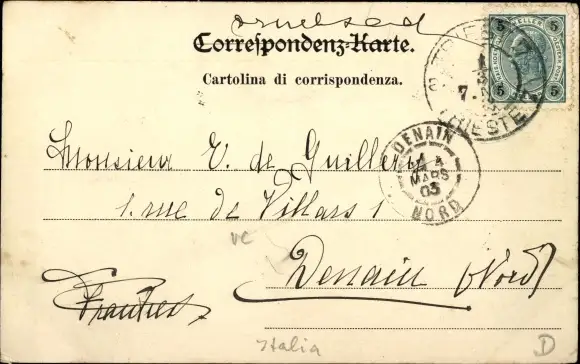 Correspondenz-Karte.
Cartolina di corrispondenza.
5 HELLER 5
5 5
TRIESTE
7.
DENAIN
MARS
03
NORD
Monsieur V. de Guillery
1. rue de Villars 1
vc
Denain (Nord)
Italia
D